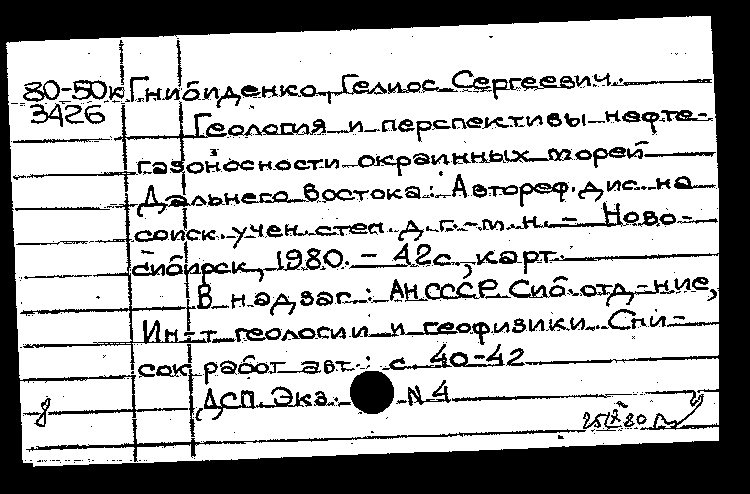 80-50к Гнибиденко, Гелиос Сергеевич.
3426
Геология и перспективы нефте-
газоносности окраинных морей
Дальнего Востока: Автореф. дис. на
соиск. учен. степ. д. г.-м. н. – Ново-
сибирск, 1980. – 42с., карт.
В надзаг.: АН СССР. Сиб. отд-ние,
Ин-т геологии и геофизики. Спи-
сок работ авт.: с. 40-42
ДСП. Экз. N 4